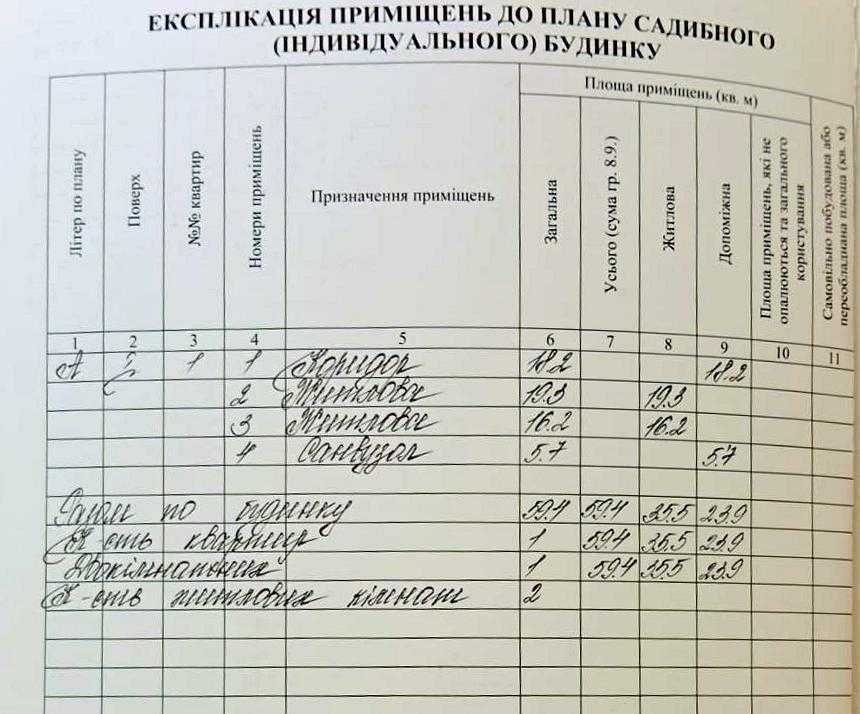 ЕКСПЛІКАЦІЯ ПРИМІЩЕНЬ ДО ПЛАНУ САДИБНОГО
(ІНДИВІДУАЛЬНОГО) БУДИНКУ
Площа приміщень (кв. м)
Літер по плану
Поверх
№№ квартир
Номери приміщень
Призначення приміщень
Загальна
Усього (сума гр. 8.9.)
Житлова
Допоміжна
Площа приміщень, які не
опалюються та загального
користування
Самовільно побудована або
переобладнана площа (кв. м)
1 2 3 4 5 6 7 8 9 10 11
А 2 1 1 Коридор 18.2 18.2
2 Житлова 19.3 19.3
3 Житлова 16.2 16.2
4 Санвузол 5.7 5.7
Разом по будинку 59.4 59.4 35.5 23.9
К-сть квартир 1 59.4 35.5 23.9
Двокімнатних 1 59.4 35.5 23.9
К-сть житлових кімнат 2